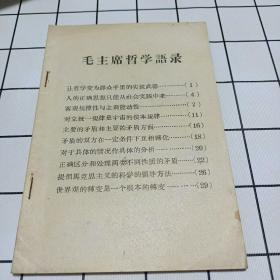 毛主席哲学語录
让哲学变为群众手里的尖銳武器…………(1)
人的正确思想只能从社会实践中来…………(4)
客观規律性与主观能动性…………(7)
对立統一規律是宇宙的根本規律…………(11)
主要的矛盾和主要的矛盾方面…………(16)
矛盾的双方在一定条件下互相轉化…………(18)
对于具体的情况作具体的分析…………(20)
正确区分和处理两类不同性质的矛盾…………(22)
提倡馬克思主义的科学的領导方法…………(26)
世界观的轉变是一个根本的轉变…………(29)